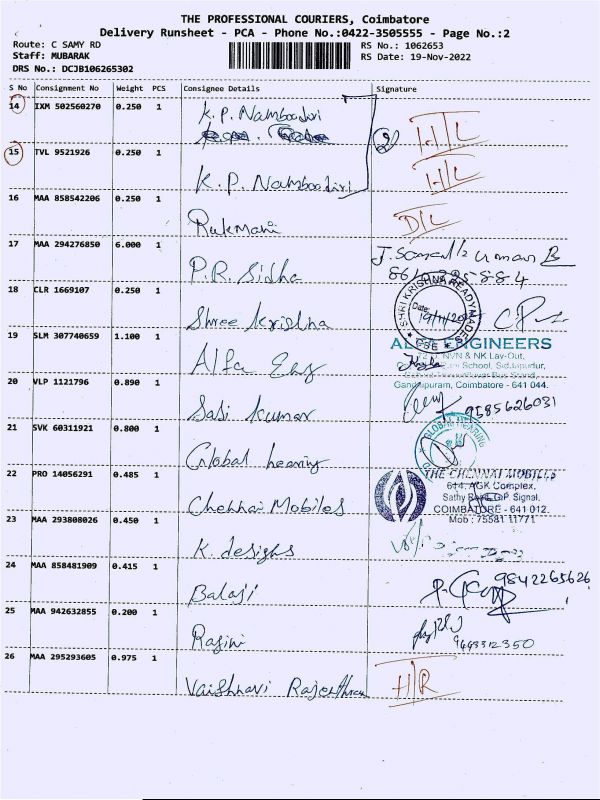 THE PROFESSIONAL COURIERS, Coimbatore
Delivery Runsheet - PCA - Phone No.:0422-3505555 - Page No.:2
Route: C SAMY RD
RS No.: 1062653
Staff: MUBARAK
RS Date: 19-Nov-2022
DRS No.: DCJB106265302
S No Consignment No Weight PCS Consignee Details Signature
14 IXM 502560270 0.250 1 K.P. Namboodiri
2 H/L
15 TVL 9521926 0.250 1 K.P. Namboodiri H/L
16 MAA 858542206 0.250 1 Rukmani D/L
17 MAA 294276850 6.000 1 P.R. Sidha
18 CLR 1669107 0.250 1 Shree Krishna
SHRI KRISHNA READYMADES
Date:
CBE
19 SLM 307740659 1.100 1 Alfa Eng
ENGINEERS
NVN & NK Lay-Out,
School, Siddapurdur,
Gandhipuram, Coimbatore - 641 044.
20 VLP 1121796 0.890 1 Sasi Kumar 9585626031
21 SVK 60311921 0.800 1 Global hearing
GLOBAL HEARING
22 PRO 14056291 0.485 1 Chennai Mobiles
THE CHENNAI MOBILES
614, AGK Complex,
Sathy Road, G.P. Signal,
COIMBATORE - 641 012.
Mob : 75581 11771
23 MAA 293808026 0.450 1 K. designs
24 MAA 858481909 0.415 1 Balaji 9842265626
25 MAA 942632855 0.200 1 Rajini
26 MAA 295293605 0.975 1 Vaishnavi Rajenthran H/R